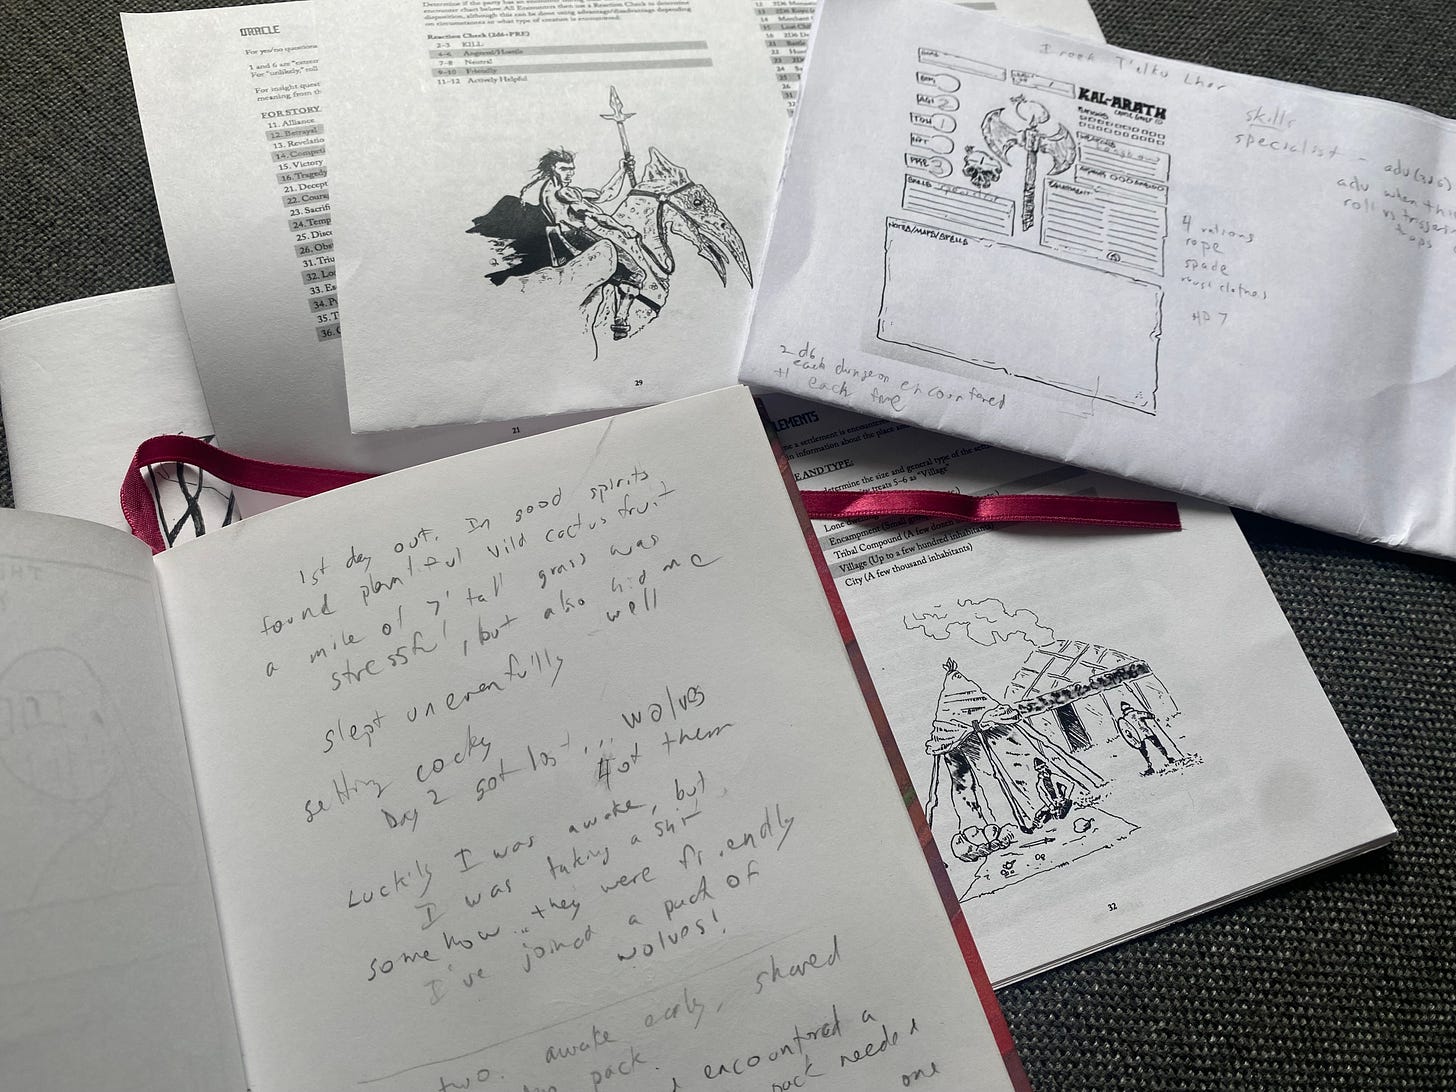 ORACLE
For yes/no questions
1 and 6 are "extrem
For "unlikely," roll
For insight quest
meaning from th
FOR STORY
11. Alliance
12. Betrayal
13. Revelatio
14. Competi
15. Victory
16. Tragedy
21. Decept
22. Coura
23. Sacrifi
24. Temp
25. Disco
26. Obs
31. Triu
32. Lo
33. Es
34. P
35. T
36.
21
Determine if the party has an encounter
encounter chart below. All Encounters then use a Reaction Check to determine
disposition, although this can be done using advantage/disadvantage depending
on circumstances or what type of creature is encountered.
Reaction Check (2d6+PRE)
2-3 KILL
4-6 Angered/Hostile
7-8 Neutral
9-10 Friendly
11-12 Actively Helpful
29
14 Merchant
15 Lost
16 2D6
21 Battle
KAL-ARATH
AGI 2
TOU
INT
PRE 3
SKILLS
EQUIPMENT
NOTES/MAPS/SPELLS
skills
specialist - adv (3d6)
adv when
roll vs triggering
traps
4 rations
rope
spade
clothes
HP 7
2 d6
each dungeon encountered
+1 each time
LEMENTS
me a settlement is encounte
in information about the place a
E AND TYPE:
determine the size and general type of the
treats 5-6 as "Village"
Lone
Encampment (Small
Tribal Compound (A few dozen
Village (Up to a few hundred inhabitants)
City (A few thousand inhabitants)
32
1st day out. In good spirits
found plentiful wild cactus fruit
a mile of 7' tall grass was
stressful, but also hid me
well
slept unevenfully
getting cocky
Day 2 got lost... wolves
4 of them
Luckily I was awake, but
I was taking a shit
somehow... they were friendly
I've joined a pack of
wolves!
two. awake early, shared
pack.
encountered a
pack needed
one